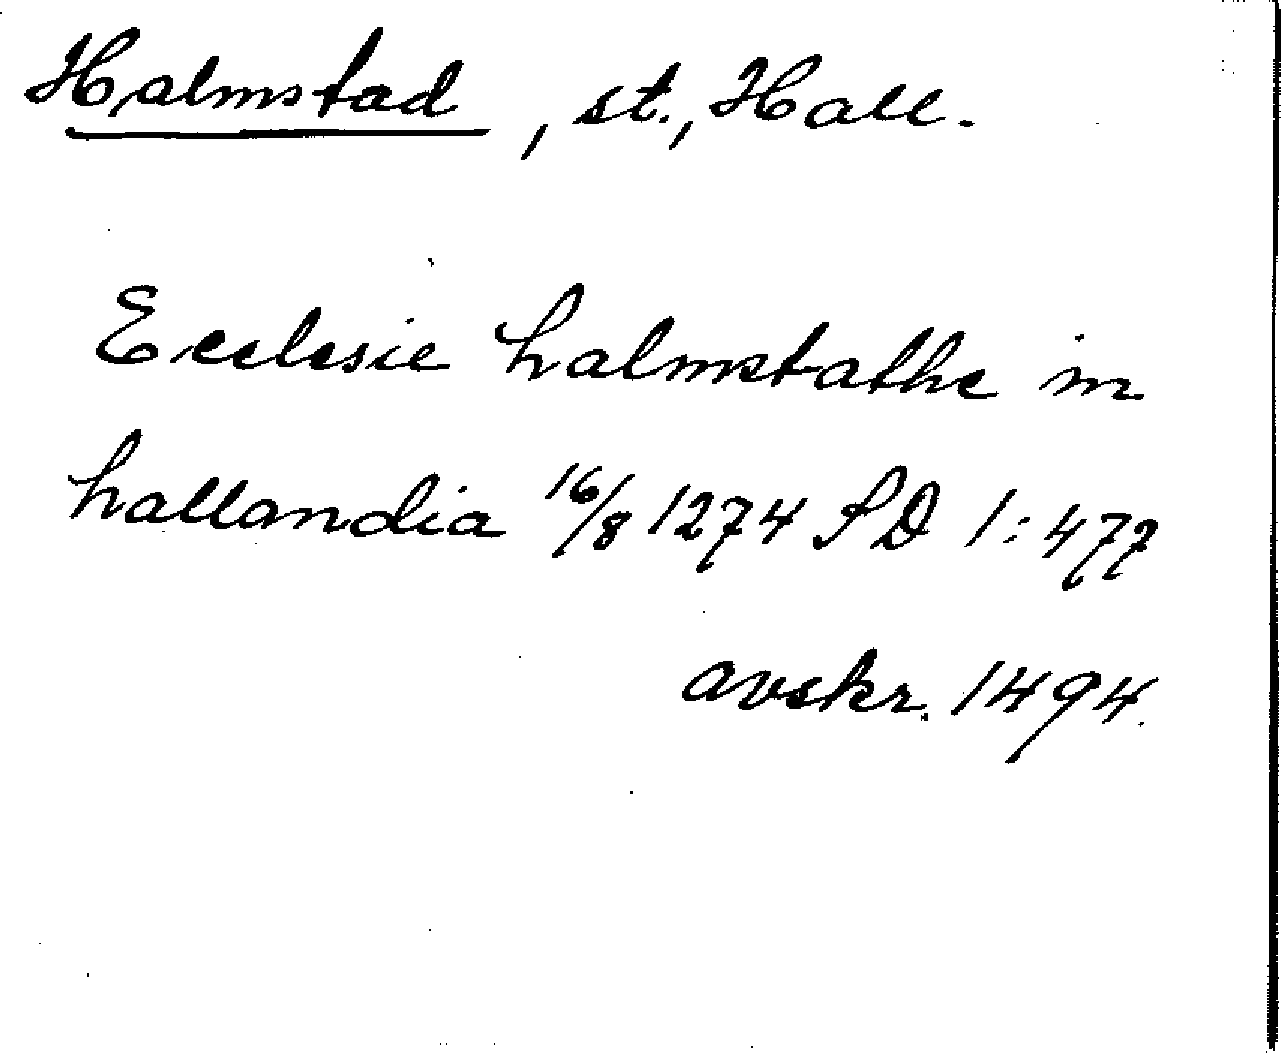 Halmstad, st., Hall.
Ecclesie halmstathe in
hallandia 16/8 1274 SD 1:477
avskr. 1494.